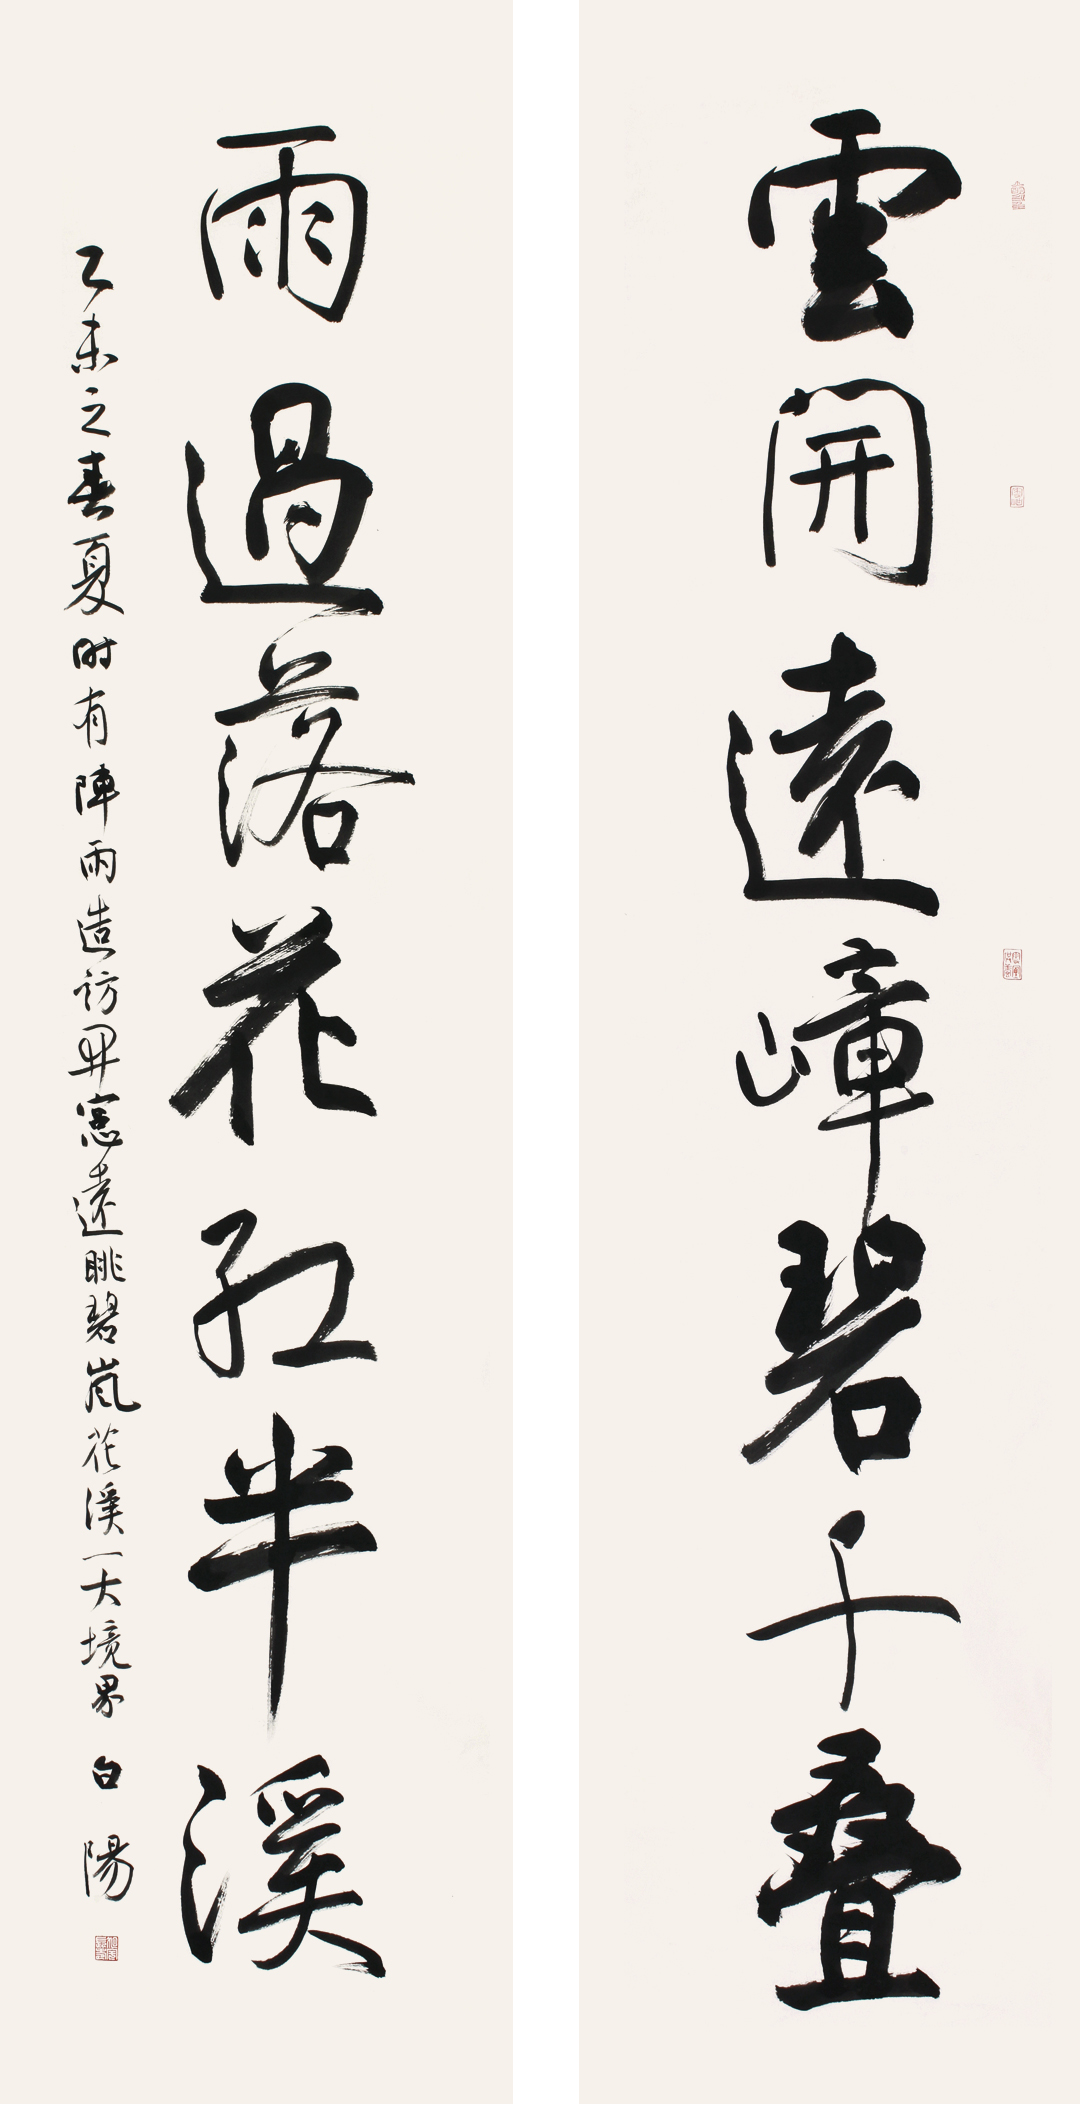 雲開遠嶂碧千叠
雨過落花紅半溪
乙未之春夏時有陣雨造訪開窓遠眺碧嵐花溪一大境界 白陽